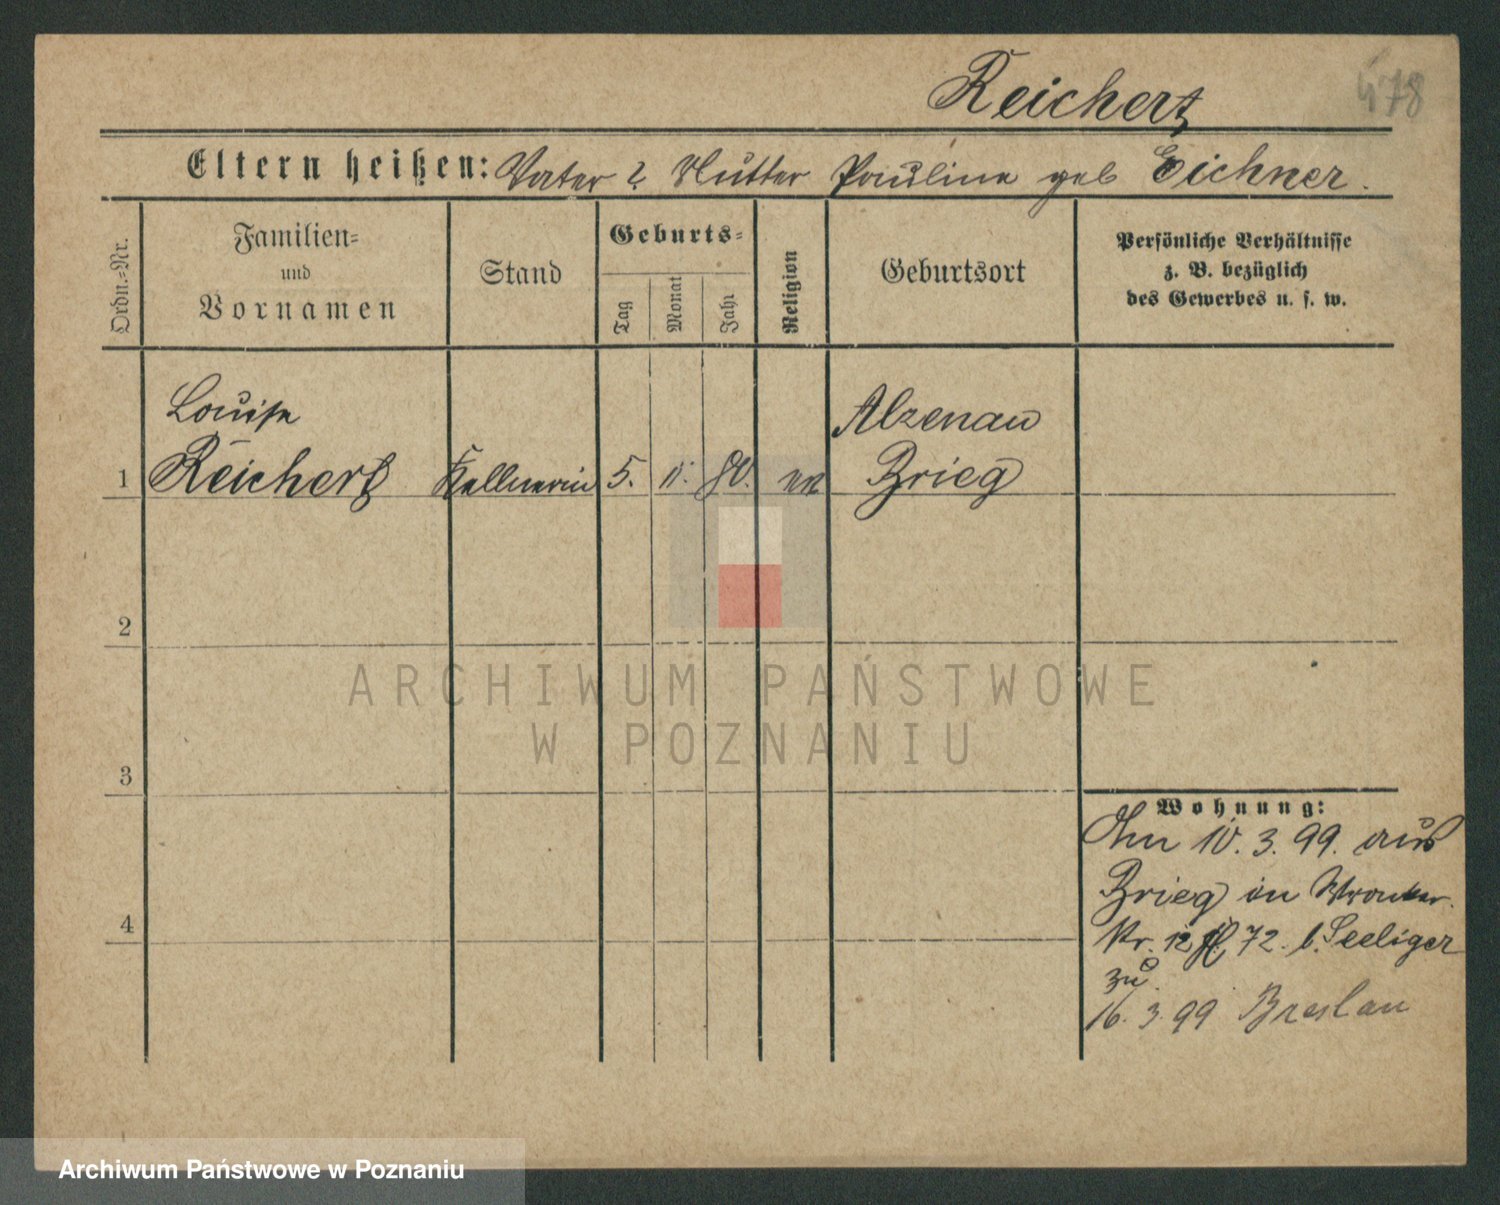 Reichert
478
Eltern heißen: Vater ? Mutter Pauline geb Eichner.
Ordn.=Nr.
Familien=
und
Vornamen
Stand
Geburts=
Tag
Monat
Jahr
Religion
Geburtsort
Persönliche Verhältnisse
z. B. bezüglich
des Gewerbes u. s. w.
Louise Alzenau
1 Reichert Kellnerin 5. 11. 80. ev Brieg
2
3
4
ARCHIWUM PAŃSTWOWE
W POZNANIU
Wohnung:
Am 10. 3. 99. aus
Brieg in Wronker.
Str. 12 72. b. Seeliger
zu.
16. 3. 99 Breslau
Archiwum Państwowe w Poznaniu